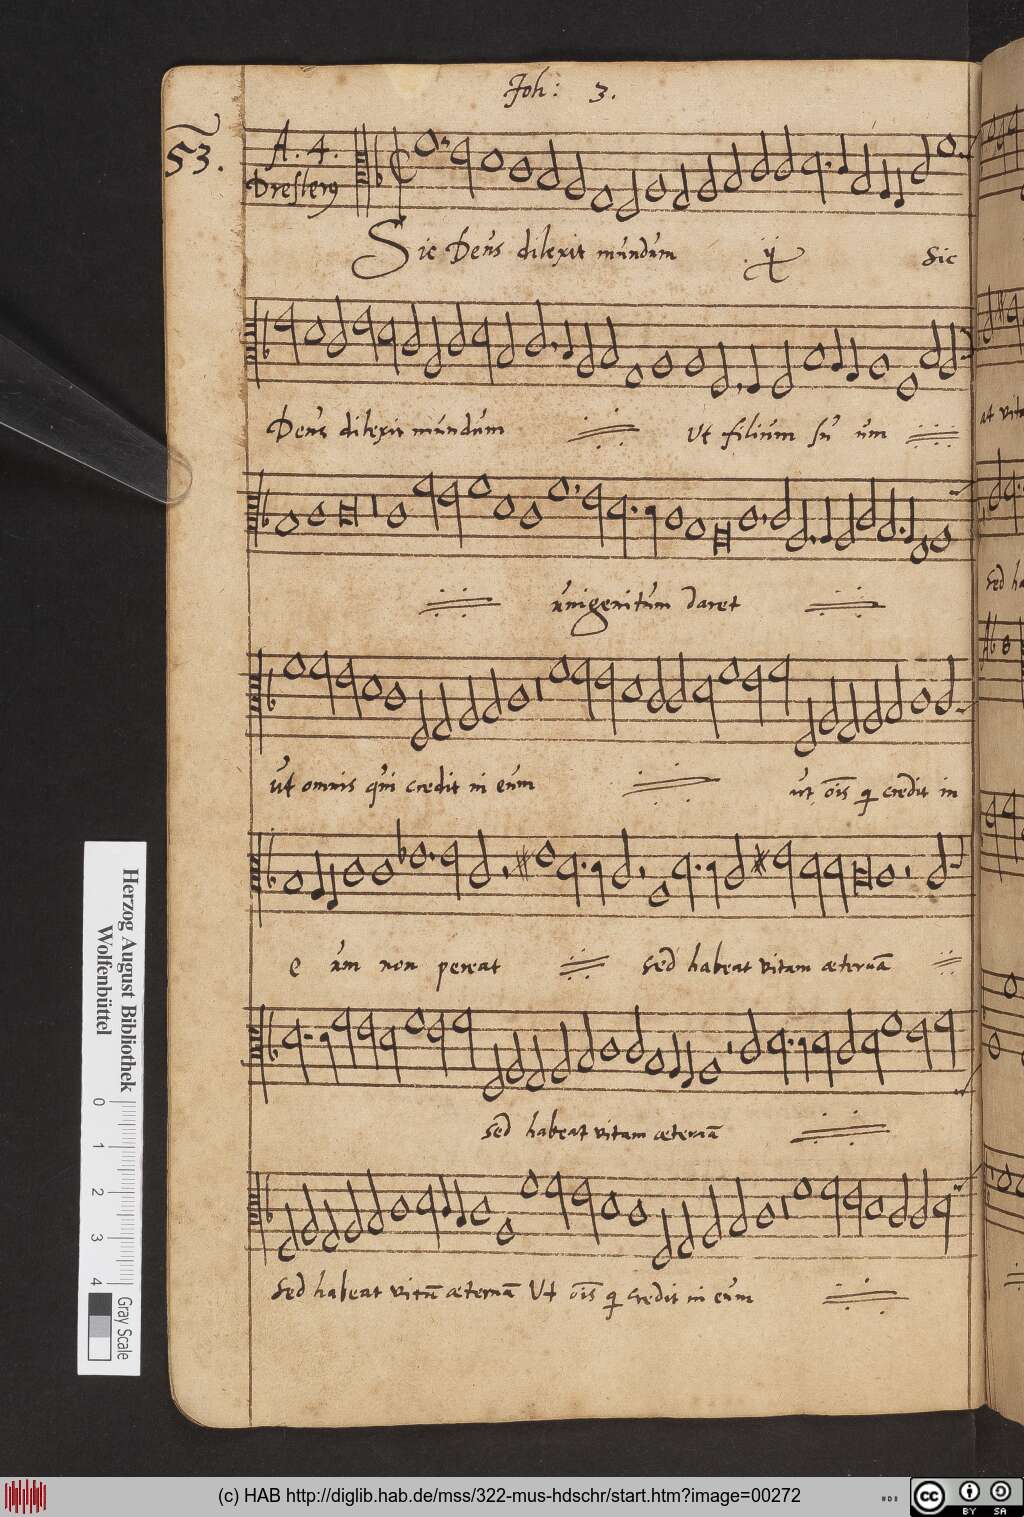 Joh: 3.
53.
A. 4.
Dreslerg
Sic Deus dilexit mundum ij Sic
Deus dilexit mundum Ut filium su um
unigenitum daret
ut omnis qui credit in eum ut oīs q credit in
e um non pereat sed habeat vitam æternā
sed habeat vitam æternā
sed habeat vitā æternā Ut oīs q credit in eum
at vita
sed ha
Herzog August Bibliothek
Wolfenbüttel
0 1 2 3 4
Gray Scale
(c) HAB http://diglib.hab.de/mss/322-mus-hdschr/start.htm?image=00272
cc
BY SA